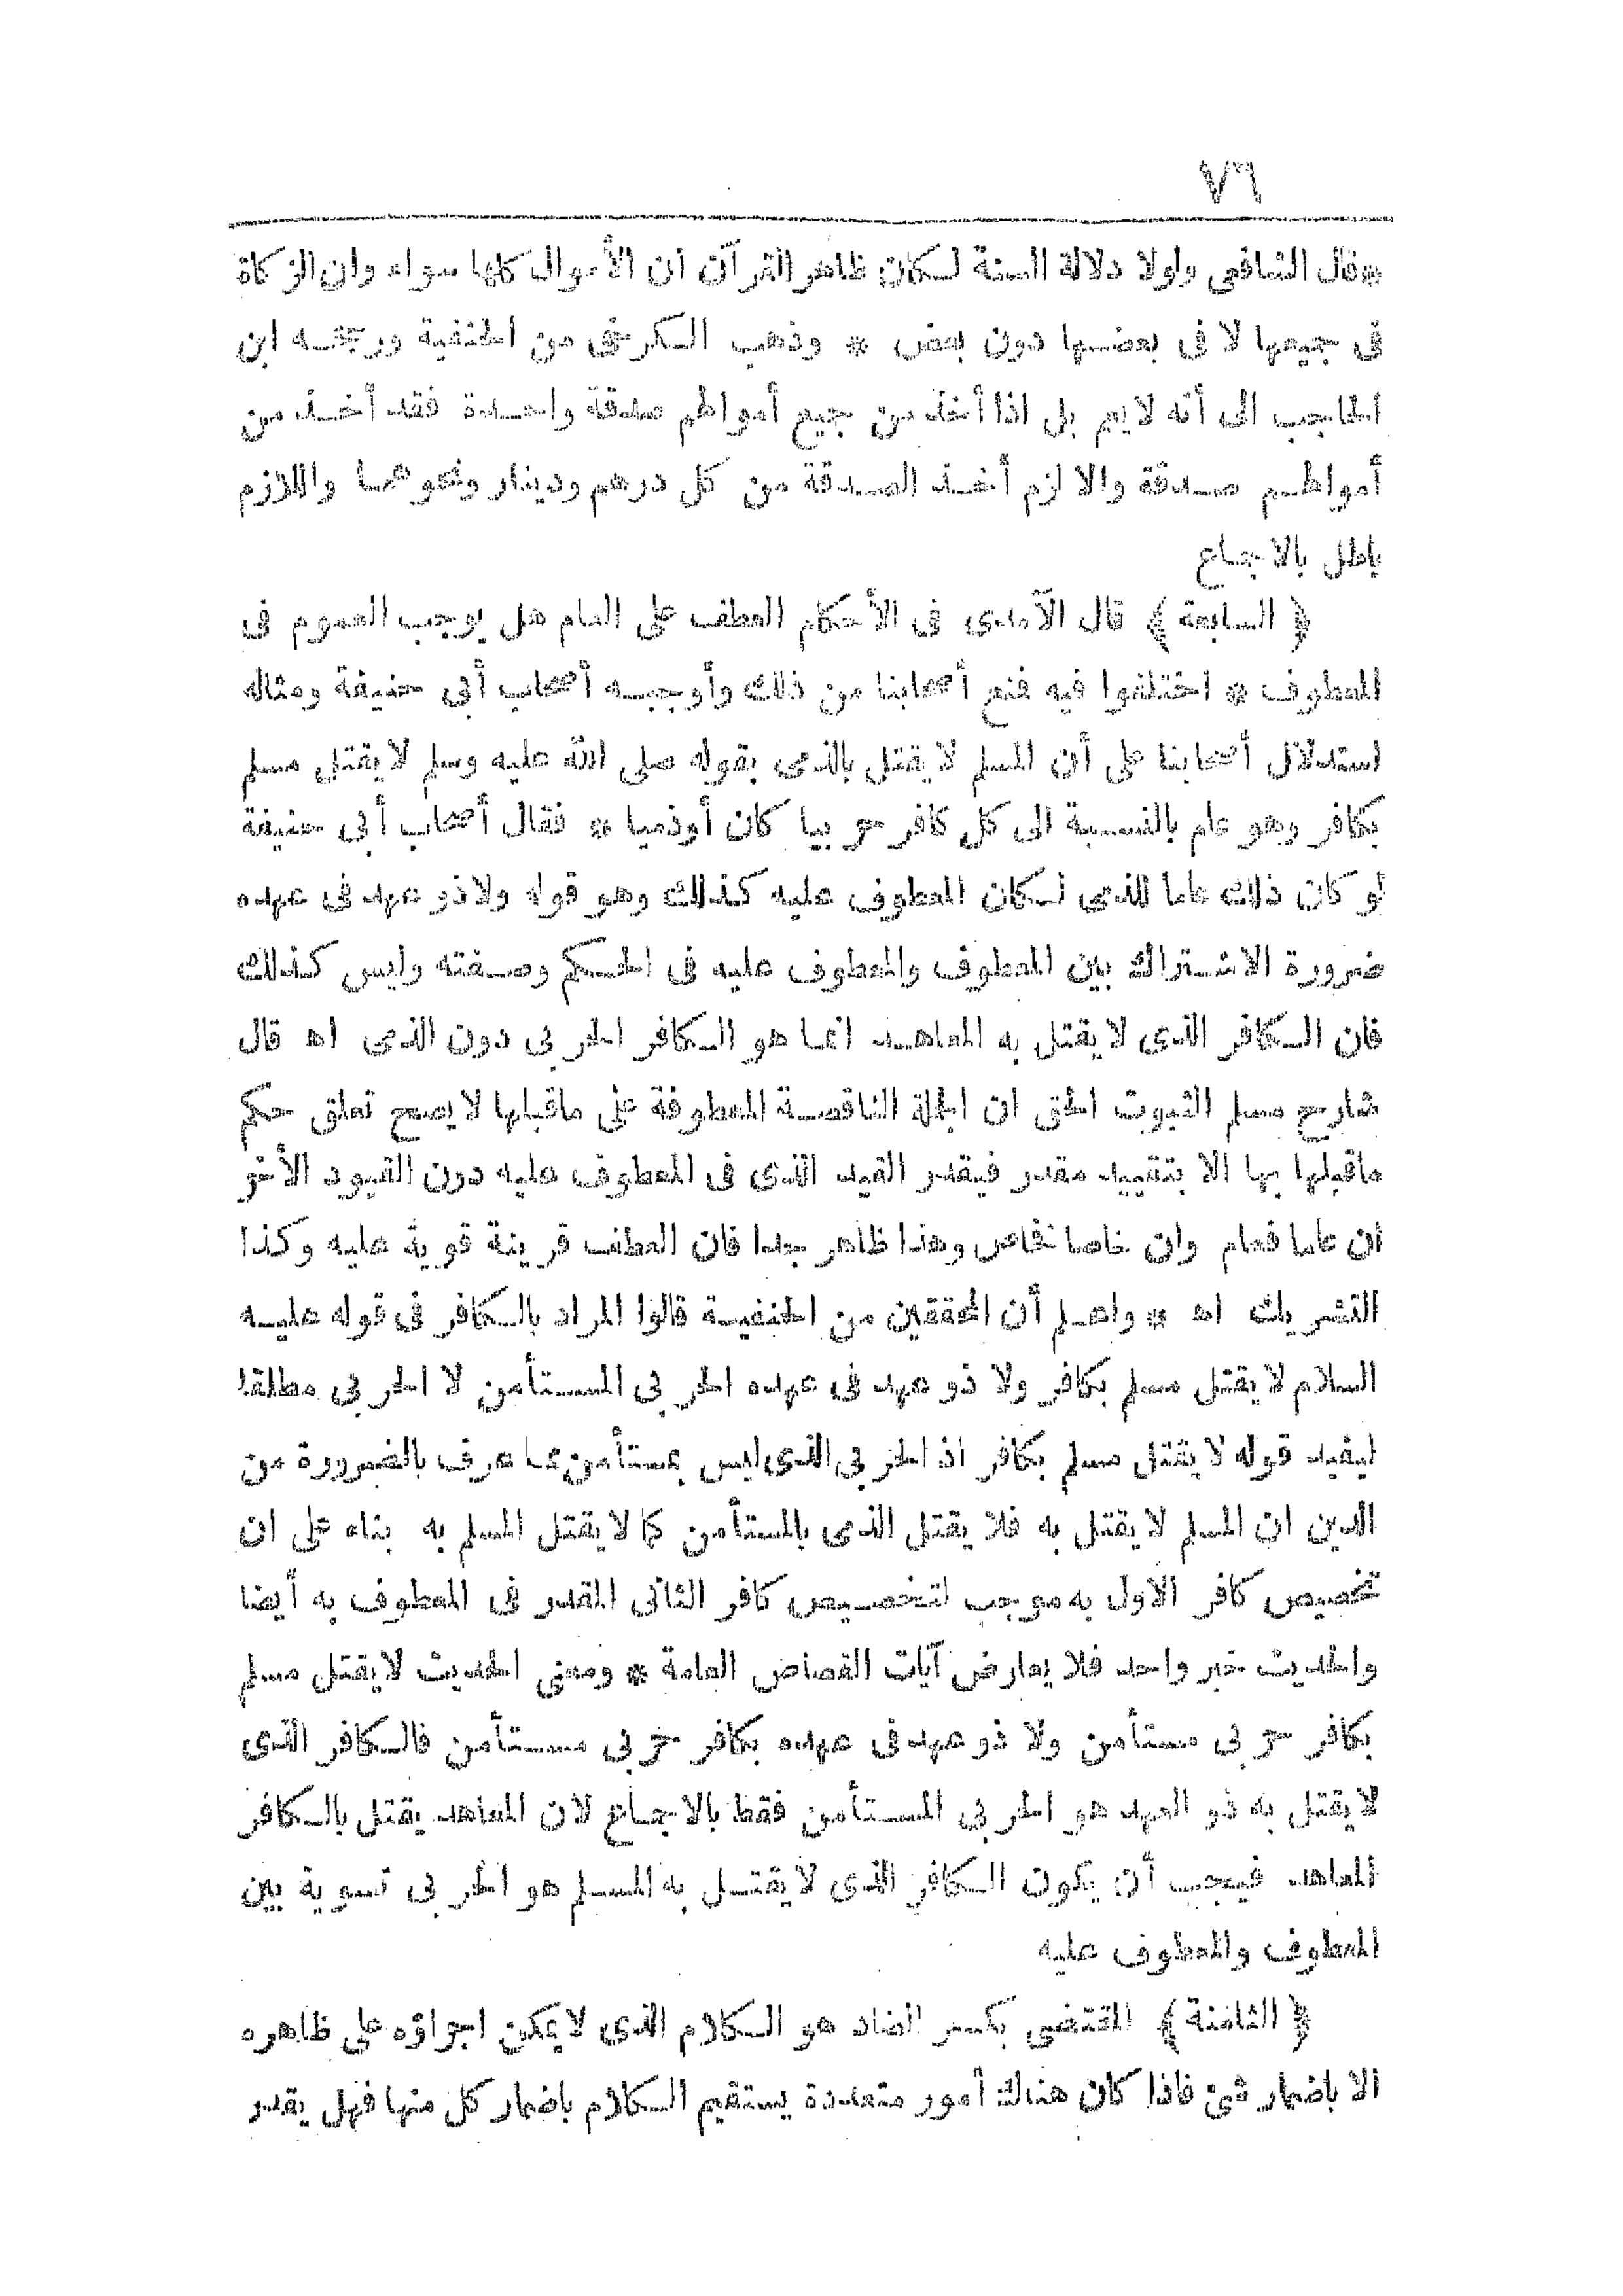 ٧٦
*قال الشافعى ولولا دلالة السنة لكان ظاهر القرآن ان الأموال كلها سواء وان الزكاة
فى جميعها لا فى بعضها دون بعض * وذهب الكرخى من الحنفية ورجحه ابن
الحاجب الى أنه لايعم بل اذا أخذ من جميع أموالهم صدقة واحدة فقد أخذ من
أموالهم صدقة والا لزم أخذ الصدقة من كل درهم ودينار ونحوهما واللازم
باطل بالاجماع
﴿ السابعة ﴾ قال الآمدى فى الأحكام العطف على العام هل يوجب العموم فى
المعطوف * اختلفوا فيه فمنع أصحابنا من ذلك وأوجبه أصحاب أبى حنيفة ومثاله
استدلال أصحابنا على أن المسلم لايقتل بالذمى بقوله صلى الله عليه وسلم لايقتل مسلم
بكافر وهو عام بالنسبة الى كل كافر حربيا كان أوذميا * فقال أصحاب أبى حنيفة
لو كان ذلك عاما للذمى لكان المعطوف عليه كذلك وهو قوله ولاذو عهد فى عهده
ضرورة الاشتراك بين المعطوف والمعطوف عليه فى الحكم وصفته وليس كذلك
فان الكافر الذى لايقتل به المعاهد انما هو الكافر الحربى دون الذمى اه قال
شارح مسلم الثبوت الحق ان الجملة الناقصة المعطوفة على ماقبلها لايصح تعلق حكم
ماقبلها بها الا بتقييد مقدر فيقدر القيد الذى فى المعطوف عليه دون القيود الأخر
ان عاما فعام وان خاصا فخاص وهذا ظاهر جدا فان العطف قرينة قوية عليه وكذا
التشريك اه * واعلم أن المحققين من الحنفية قالوا المراد بالكافر فى قوله عليه
السلام لايقتل مسلم بكافر ولا ذو عهد فى عهده الحربى المستأمن لا الحربى مطلقا
ليفيد قوله لايقتل مسلم بكافر اذ الحربى الذى ليس بمستأمن مما عرف بالضرورة من
الدين ان المسلم لايقتل به فلا يقتل الذمى بالمستأمن كما لايقتل المسلم به بناء على ان
تخصيص كافر الاول به موجب لتخصيص كافر الثانى المقدر فى المعطوف به أيضا
والحديث خبر واحد فلا يعارض آيات القصاص العامة * ومعنى الحديث لايقتل مسلم
بكافر حربى مستأمن ولا ذوعهد فى عهده بكافر حربى مستأمن فالكافر الذى
لايقتل به ذو العهد هو الحربى المستأمن فقط بالاجماع لان المعاهد يقتل بالكافر
المعاهد فيجب أن يكون الكافر الذى لايقتل به المسلم هو الحربى تسوية بين
المعطوف والمعطوف عليه
﴿ الثامنة ﴾ المقتضى بكسر الضاد هو الكلام الذى لايمكن اجراؤه على ظاهره
الا باضمار شئ فاذا كان هناك أمور متعددة يستقيم الكلام باضمار كل منها فهل يقدر